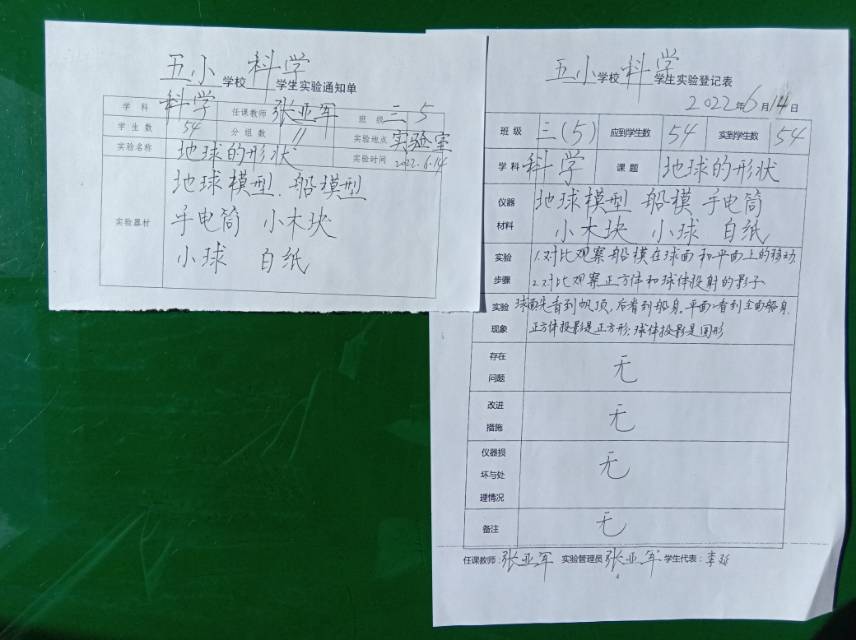 五小学校科学学生实验通知单
学科 科学 任课教师 张亚军 班级 三.5
学生数 54 分组数 11 实验地点 实验室
实验名称 地球的形状 实验时间 2022.6.14
实验器材 地球模型、船模型
手电筒 小木块
小球 白纸
五小学校科学学生实验登记表
2022年6月14日
班级 三(5) 应到学生数 54 实到学生数 54
学科 科学 课题 地球的形状
仪器材料 地球模型 船模 手电筒
小木块 小球 白纸
实验步骤 1.对比观察船模在球面和平面上的移动
2.对比观察正方体和球体投射的影子
实验现象 球面先看到帆顶,后看到船身。平面看到全面船身.
正方体投影是正方形;球体投影是圆形
存在问题 无
改进措施 无
仪器损坏与处理情况 无
备注 无
任课教师:张亚军 实验管理员 张亚军 学生代表:李